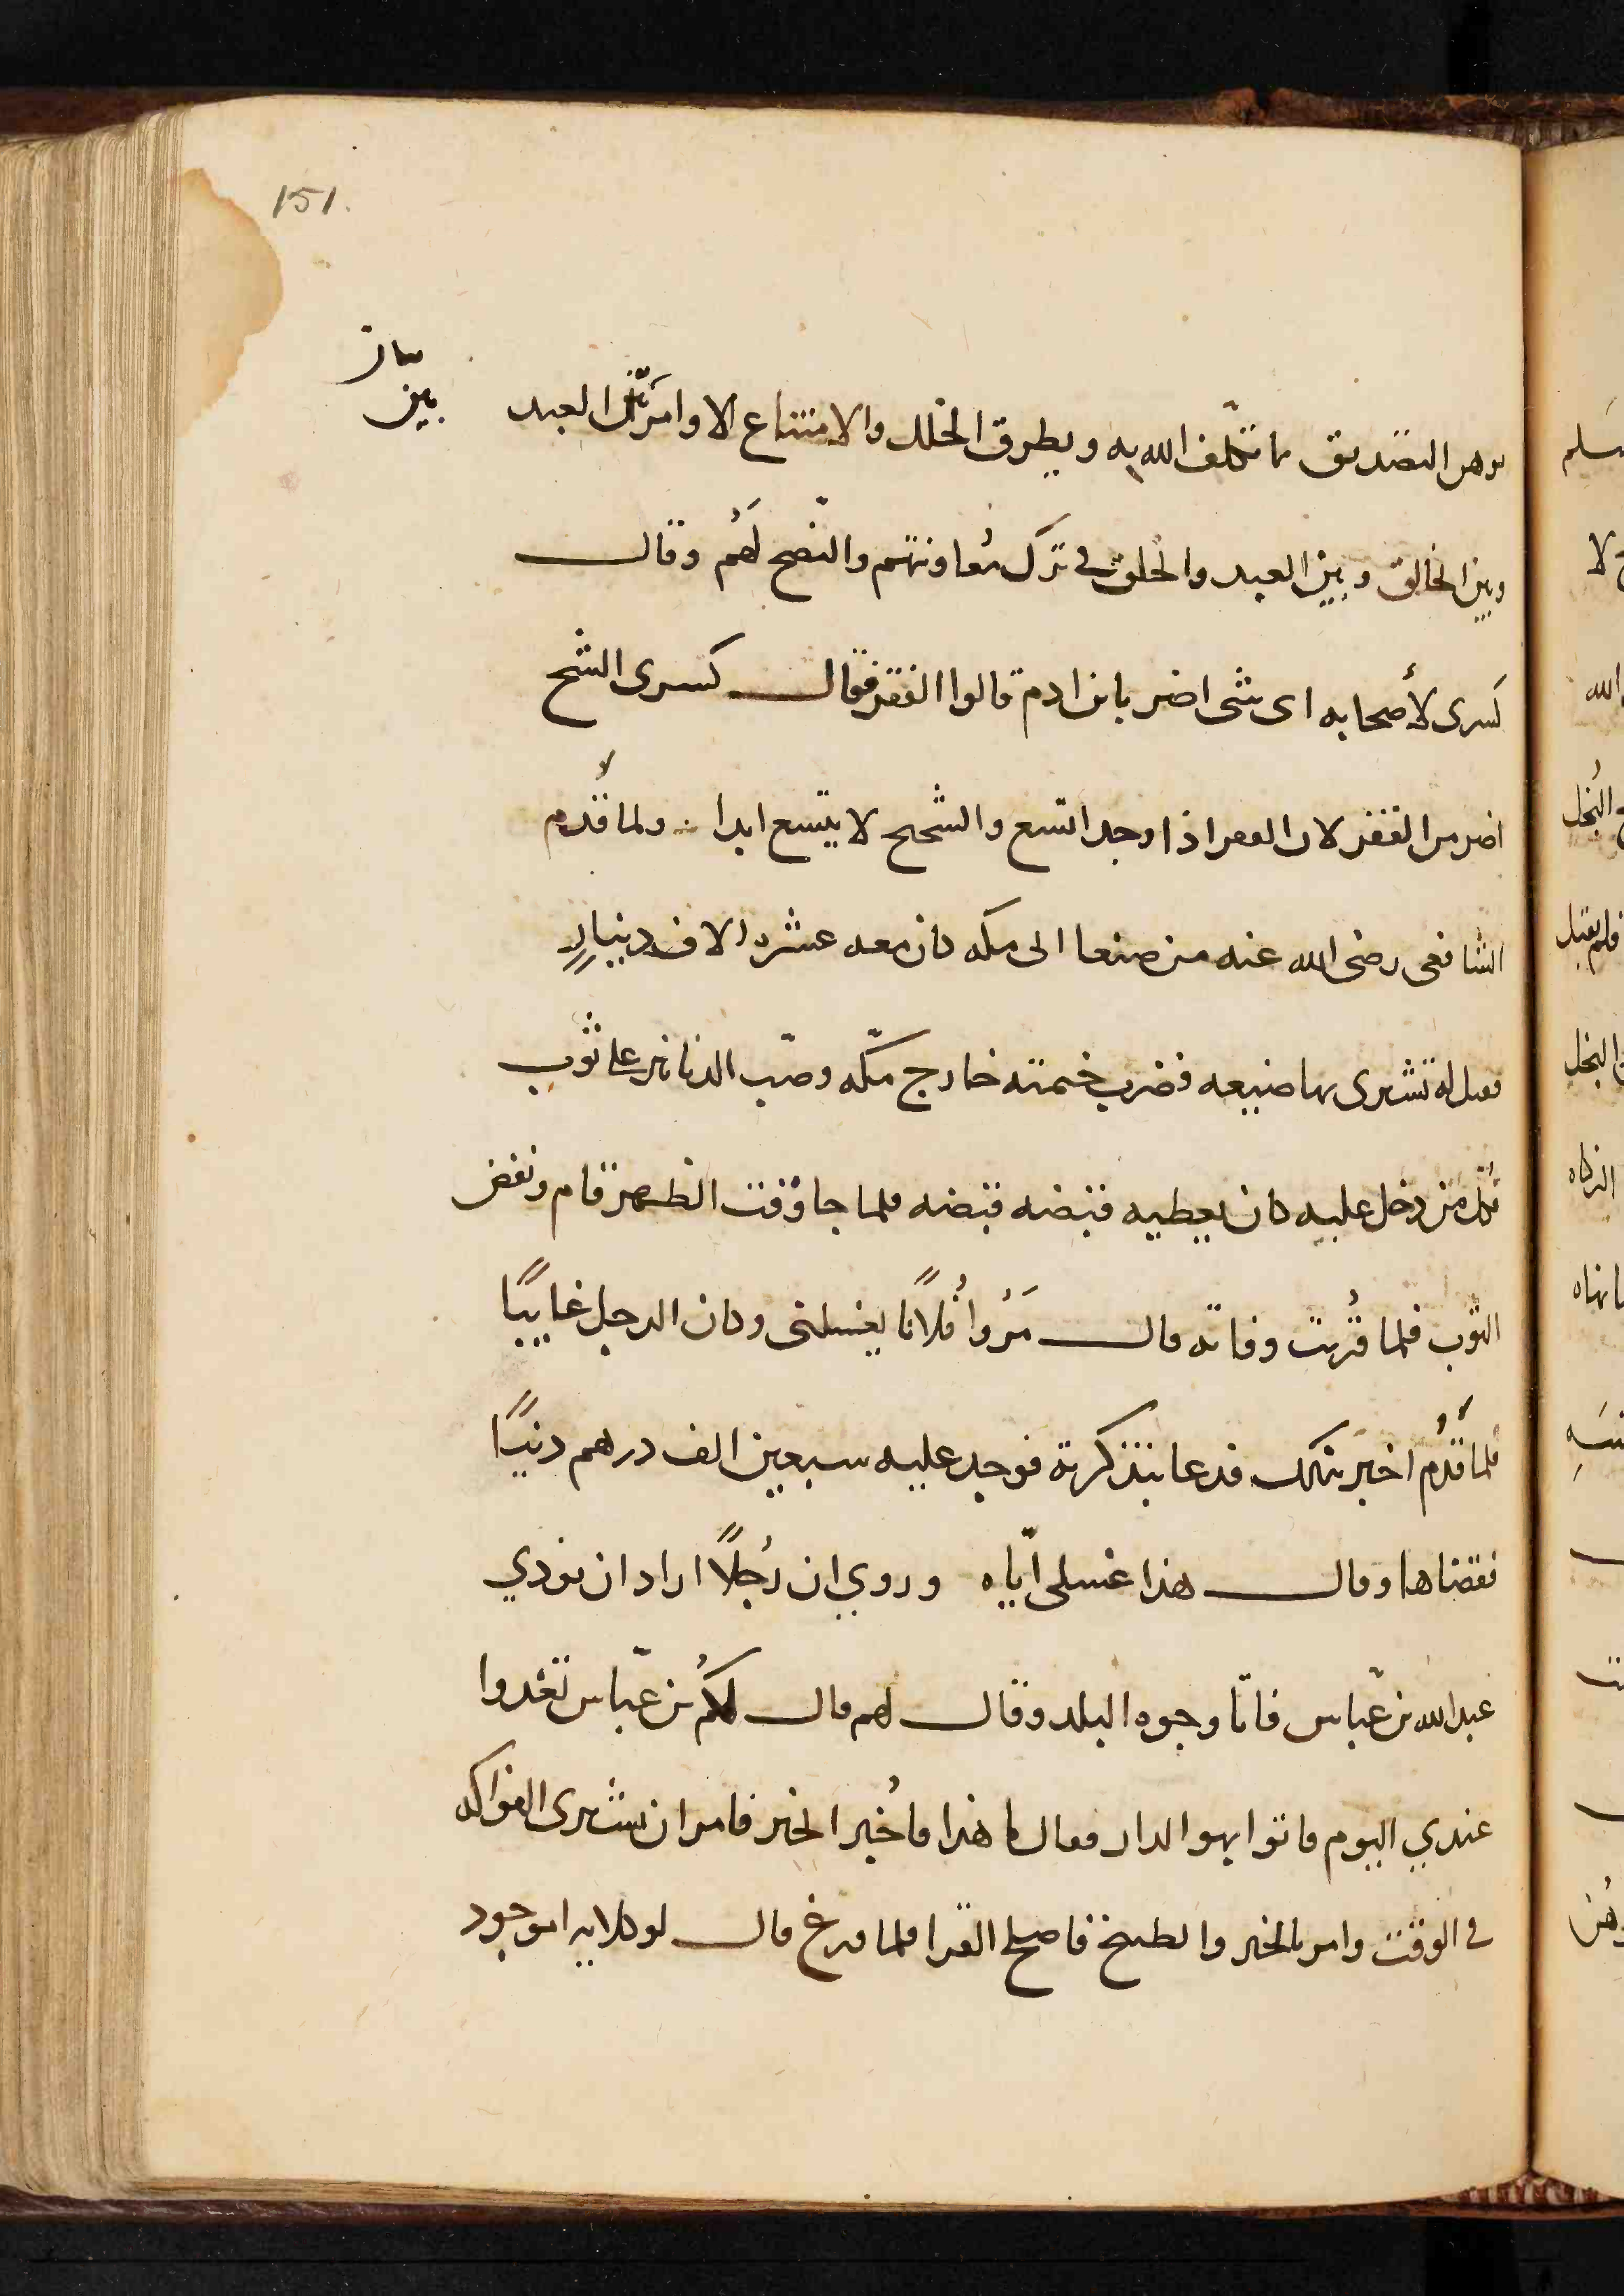 151.
بيان
بين
يوهن التصديق بما تكلف الله به ويطرق الخلل والامتناع الاوامر بين العبد
وبين الخالق وبين العبد والخلق في ترك معاونتهم والنّصح لَهُم وقال
كسرى لأصحابه اى شى اضر بابن ادم قالوا الفقر فقال كسرى الشح
اضر من الفقر لان الفقر اذا وجد اتسع والشحيح لا يتسع ابدا ولما قُدم
الشافعى رضى الله عنه من صنعا الى مكه كان معه عشره الاف دينارٍ
فقيل له تشترى بها ضيعه فضرب خيمته خارج مكّه وصّب الدنانير على ثوب
فكل من دخل عليه كان يعطيه قبضه قبضه فلما جا وقت الظهر قام ونفض
الثوب فلما قُربت وفاته قال مَرُوا فُلانًا يغسلنى وكان الرجل غايبًا
فلما قدُم اخبر بذلك فدعا بتذكرته فوجد عليه سبعين الف درهم دينًا
فقضاها وقال هذا غسلى ايّاه وروي ان رُجلًا اراد ان يوذي
عبد الله بن عبّاس فاتا وجوه البلد وقال لهم قال لكُم بن عبّاس تغدوا
عندي اليوم فاتوا بهو الدار فقال ما هذا فاُخبر الخبر فامر ان يشترى الفواكه
فى الوقت وامر بالخبز والطبخ فاصلح القرا فلما فرغ قال لوكلايه اموجود